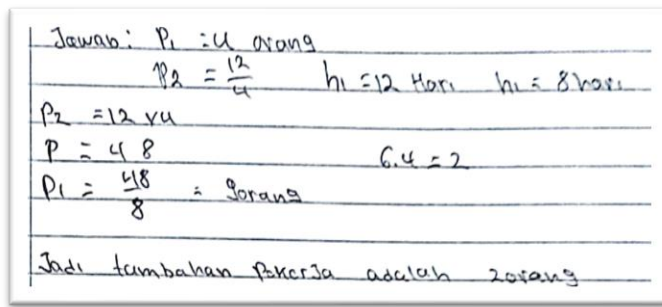 Jawab: P₁ = 4 orang
P₂ = 12/4 h₁ = 12 Hari h₁ = 8 hari
P₂ = 12 x 4
P = 48 6.4 = 2
P₁ = 48/8 = orang
Jadi tambahan Pekerja adalah 2 orang